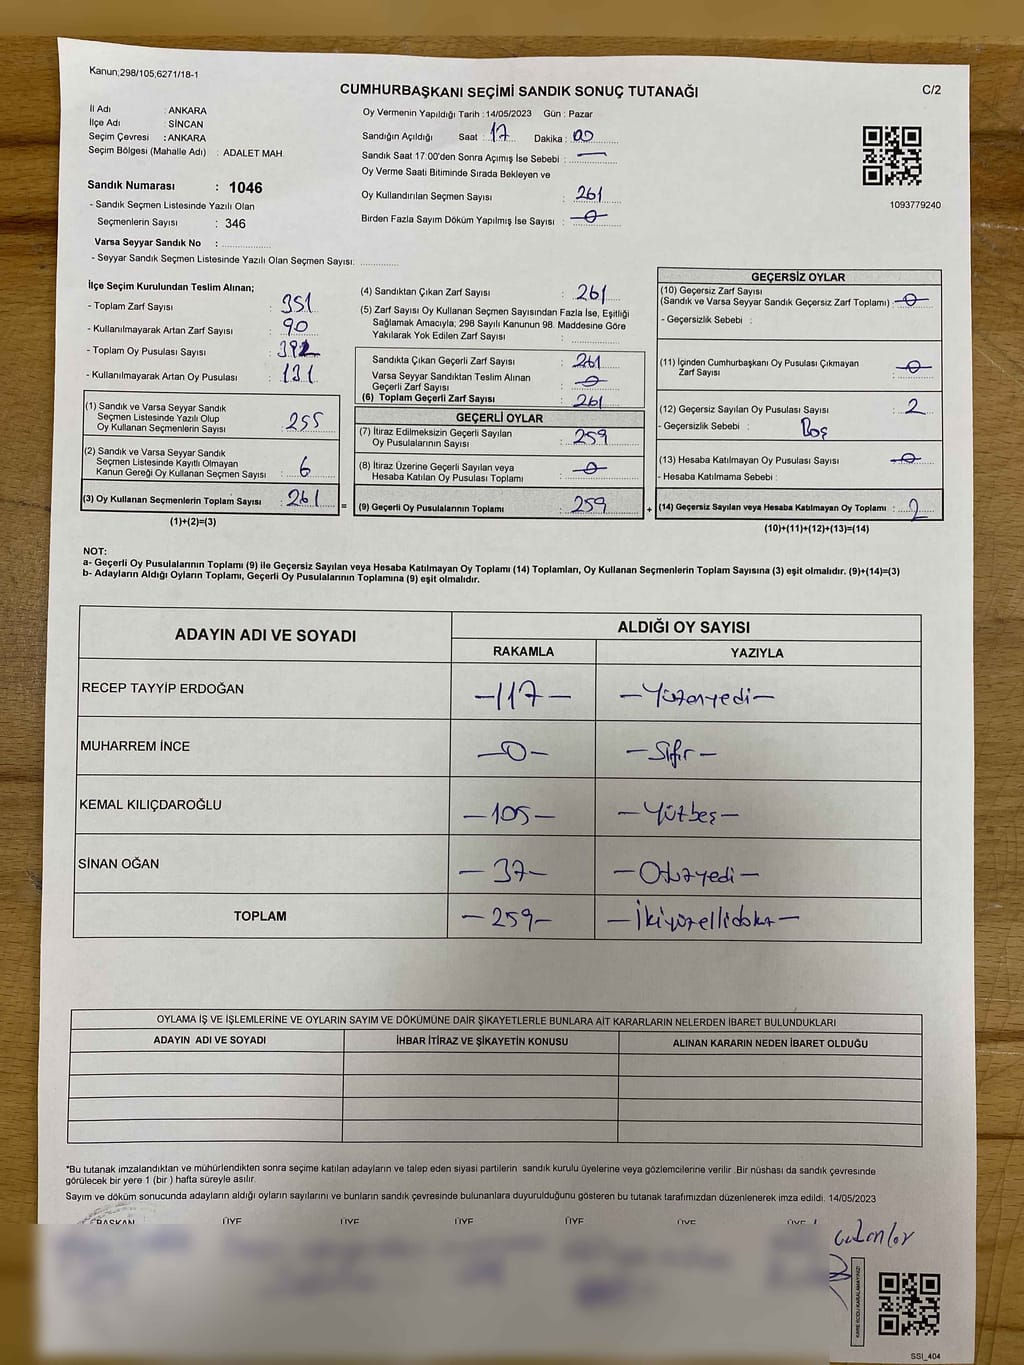 Kanun;298/105,6271/18-1
CUMHURBAŞKANI SEÇİMİ SANDIK SONUÇ TUTANAĞI
C/2
İl Adı : ANKARA
İlçe Adı : SİNCAN
Seçim Çevresi : ANKARA
Seçim Bölgesi (Mahalle Adı) : ADALET MAH.
Sandık Numarası : 1046
- Sandık Seçmen Listesinde Yazılı Olan
Seçmenlerin Sayısı : 346
Varsa Seyyar Sandık No :
- Seyyar Sandık Seçmen Listesinde Yazılı Olan Seçmen Sayısı:
Oy Vermenin Yapıldığı Tarih : 14/05/2023 Gün : Pazar
Sandığın Açıldığı Saat : 17 Dakika : 00
Sandık Saat 17:00'den Sonra Açımış İse Sebebi : —
Oy Verme Saati Bitiminde Sırada Bekleyen ve
Oy Kullandırılan Seçmen Sayısı : 261
Birden Fazla Sayım Döküm Yapılmış İse Sayısı : 0
1093779240
İlçe Seçim Kurulundan Teslim Alınan;
- Toplam Zarf Sayısı : 351
- Kullanılmayarak Artan Zarf Sayısı : 90
- Toplam Oy Pusulası Sayısı :
- Kullanılmayarak Artan Oy Pusulası : 131
(1) Sandık ve Varsa Seyyar Sandık
Seçmen Listesinde Yazılı Olup
Oy Kullanan Seçmenlerin Sayısı : 255
(2) Sandık ve Varsa Seyyar Sandık
Seçmen Listesinde Kayıtlı Olmayan
Kanun Gereği Oy Kullanan Seçmen Sayısı : 6
(3) Oy Kullanan Seçmenlerin Toplam Sayısı : 261
(1)+(2)=(3)
=
(4) Sandıktan Çıkan Zarf Sayısı : 261
(5) Zarf Sayısı Oy Kullanan Seçmen Sayısından Fazla İse, Eşitliği
Sağlamak Amacıyla; 298 Sayılı Kanunun 98. Maddesine Göre
Yakılarak Yok Edilen Zarf Sayısı :
Sandıkta Çıkan Geçerli Zarf Sayısı : 261
Varsa Seyyar Sandıktan Teslim Alınan
Geçerli Zarf Sayısı : 0
(6) Toplam Geçerli Zarf Sayısı : 261
GEÇERLİ OYLAR
(7) İtiraz Edilmeksizin Geçerli Sayılan
Oy Pusulalarının Sayısı : 259
(8) İtiraz Üzerine Geçerli Sayılan veya
Hesaba Katılan Oy Pusulası Toplamı : 0
(9) Geçerli Oy Pusulalarının Toplamı : 259
+
GEÇERSİZ OYLAR
(10) Geçersiz Zarf Sayısı
(Sandık ve Varsa Seyyar Sandık Geçersiz Zarf Toplamı) : 0
- Geçersizlik Sebebi :
(11) İçinden Cumhurbaşkanı Oy Pusulası Çıkmayan
Zarf Sayısı : 0
(12) Geçersiz Sayılan Oy Pusulası Sayısı : 2
- Geçersizlik Sebebi : Boş
(13) Hesaba Katılmayan Oy Pusulası Sayısı : 0
- Hesaba Katılmama Sebebi :
(14) Geçersiz Sayılan veya Hesaba Katılmayan Oy Toplamı : 2
(10)+(11)+(12)+(13)=(14)
NOT:
a- Geçerli Oy Pusulalarının Toplamı (9) ile Geçersiz Sayılan veya Hesaba Katılmayan Oy Toplamı (14) Toplamları, Oy Kullanan Seçmenlerin Toplam Sayısına (3) eşit olmalıdır. (9)+(14)=(3)
b- Adayların Aldığı Oyların Toplamı, Geçerli Oy Pusulalarının Toplamına (9) eşit olmalıdır.
ADAYIN ADI VE SOYADI
ALDIĞI OY SAYISI
RAKAMLA YAZIYLA
RECEP TAYYİP ERDOĞAN —117— —Yüzonyedi—
MUHARREM İNCE —0— —Sıfır—
KEMAL KILIÇDAROĞLU —105— —Yüzbeş—
SİNAN OĞAN —37— —Otuzyedi—
TOPLAM —259— —İkiyüzellidokuz—
OYLAMA İŞ VE İŞLEMLERİNE VE OYLARIN SAYIM VE DÖKÜMÜNE DAİR ŞİKAYETLERLE BUNLARA AİT KARARLARIN NELERDEN İBARET BULUNDUKLARI
ADAYIN ADI VE SOYADI İHBAR İTİRAZ VE ŞİKAYETİN KONUSU ALINAN KARARIN NEDEN İBARET OLDUĞU
*Bu tutanak imzalandıktan ve mühürlendikten sonra seçime katılan adayların ve talep eden siyasi partilerin sandık kurulu üyelerine veya gözlemcilerine verilir .Bir nüshası da sandık çevresinde
görülecek bir yere 1 (bir ) hafta süreyle asılır.
Sayım ve döküm sonucunda adayların aldığı oyların sayılarını ve bunların sandık çevresinde bulunanlara duyurulduğunu gösteren bu tutanak tarafımızdan düzenlenerek imza edildi. 14/05/2023
BAŞKAN ÜYE ÜYE ÜYE ÜYE ÜYE ÜYE
KARE KODU KARALAMAYINIZ!
SSI_404